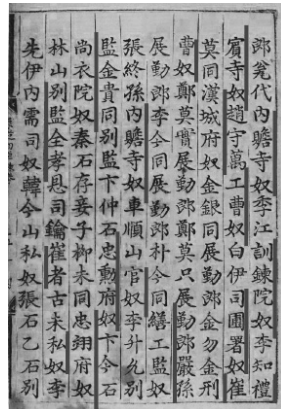 郎瓮代內贍寺奴李江訓鍊院奴李知禮
賓寺奴趙守萬工曹奴白伊司圃署奴崔
莫同漢城府奴金銀同展勤郎金勿金刑
曹奴鄭莫實展勤郎鄭莫只展勤郎嚴孫
展勤郎李今同展勤郎朴今同繕工監奴
張終孫內贍寺奴車順山官奴李外允別
監金貴同別監卞仲石忠勳府奴卞今石
尚衣院奴秦石存妾子柳未同忠翊府奴
林山別監全孝恩司鑰崔者古未私奴李
先伊內需司奴韓今山私奴張石乙石別